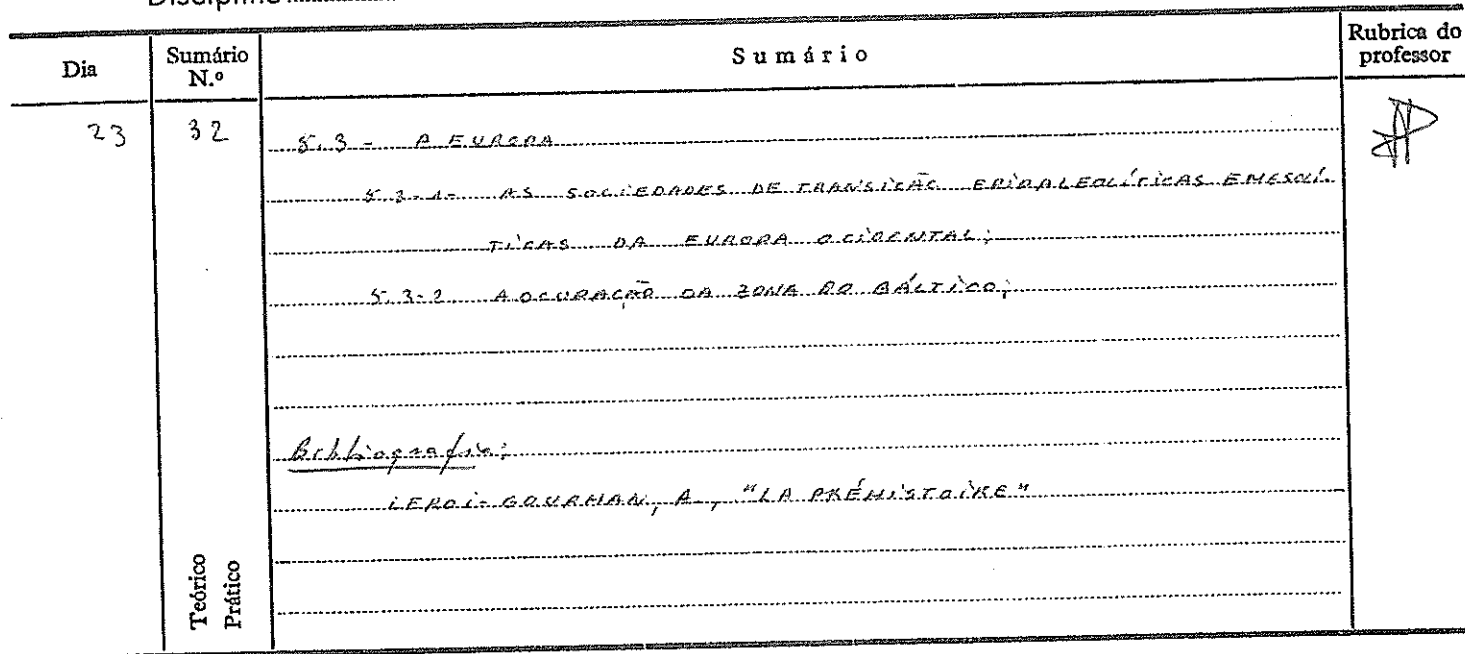 Disciplina
Dia
Sumário N.º
Sumário
Rubrica do professor
23
32
5.3 - A EUROPA
5.3-1- AS SOCIEDADES DE TRANSIÇÃO EPIPALEOLÍTICAS E MESOLÍ-
TICAS DA EUROPA OCIDENTAL;
5.3-2 A OCUPAÇÃO DA ZONA DO BÁLTICO;
Bibliografia:
LEROI-GOURHAN, A., "LA PRÉHISTOIRE"
Teórico
Prático